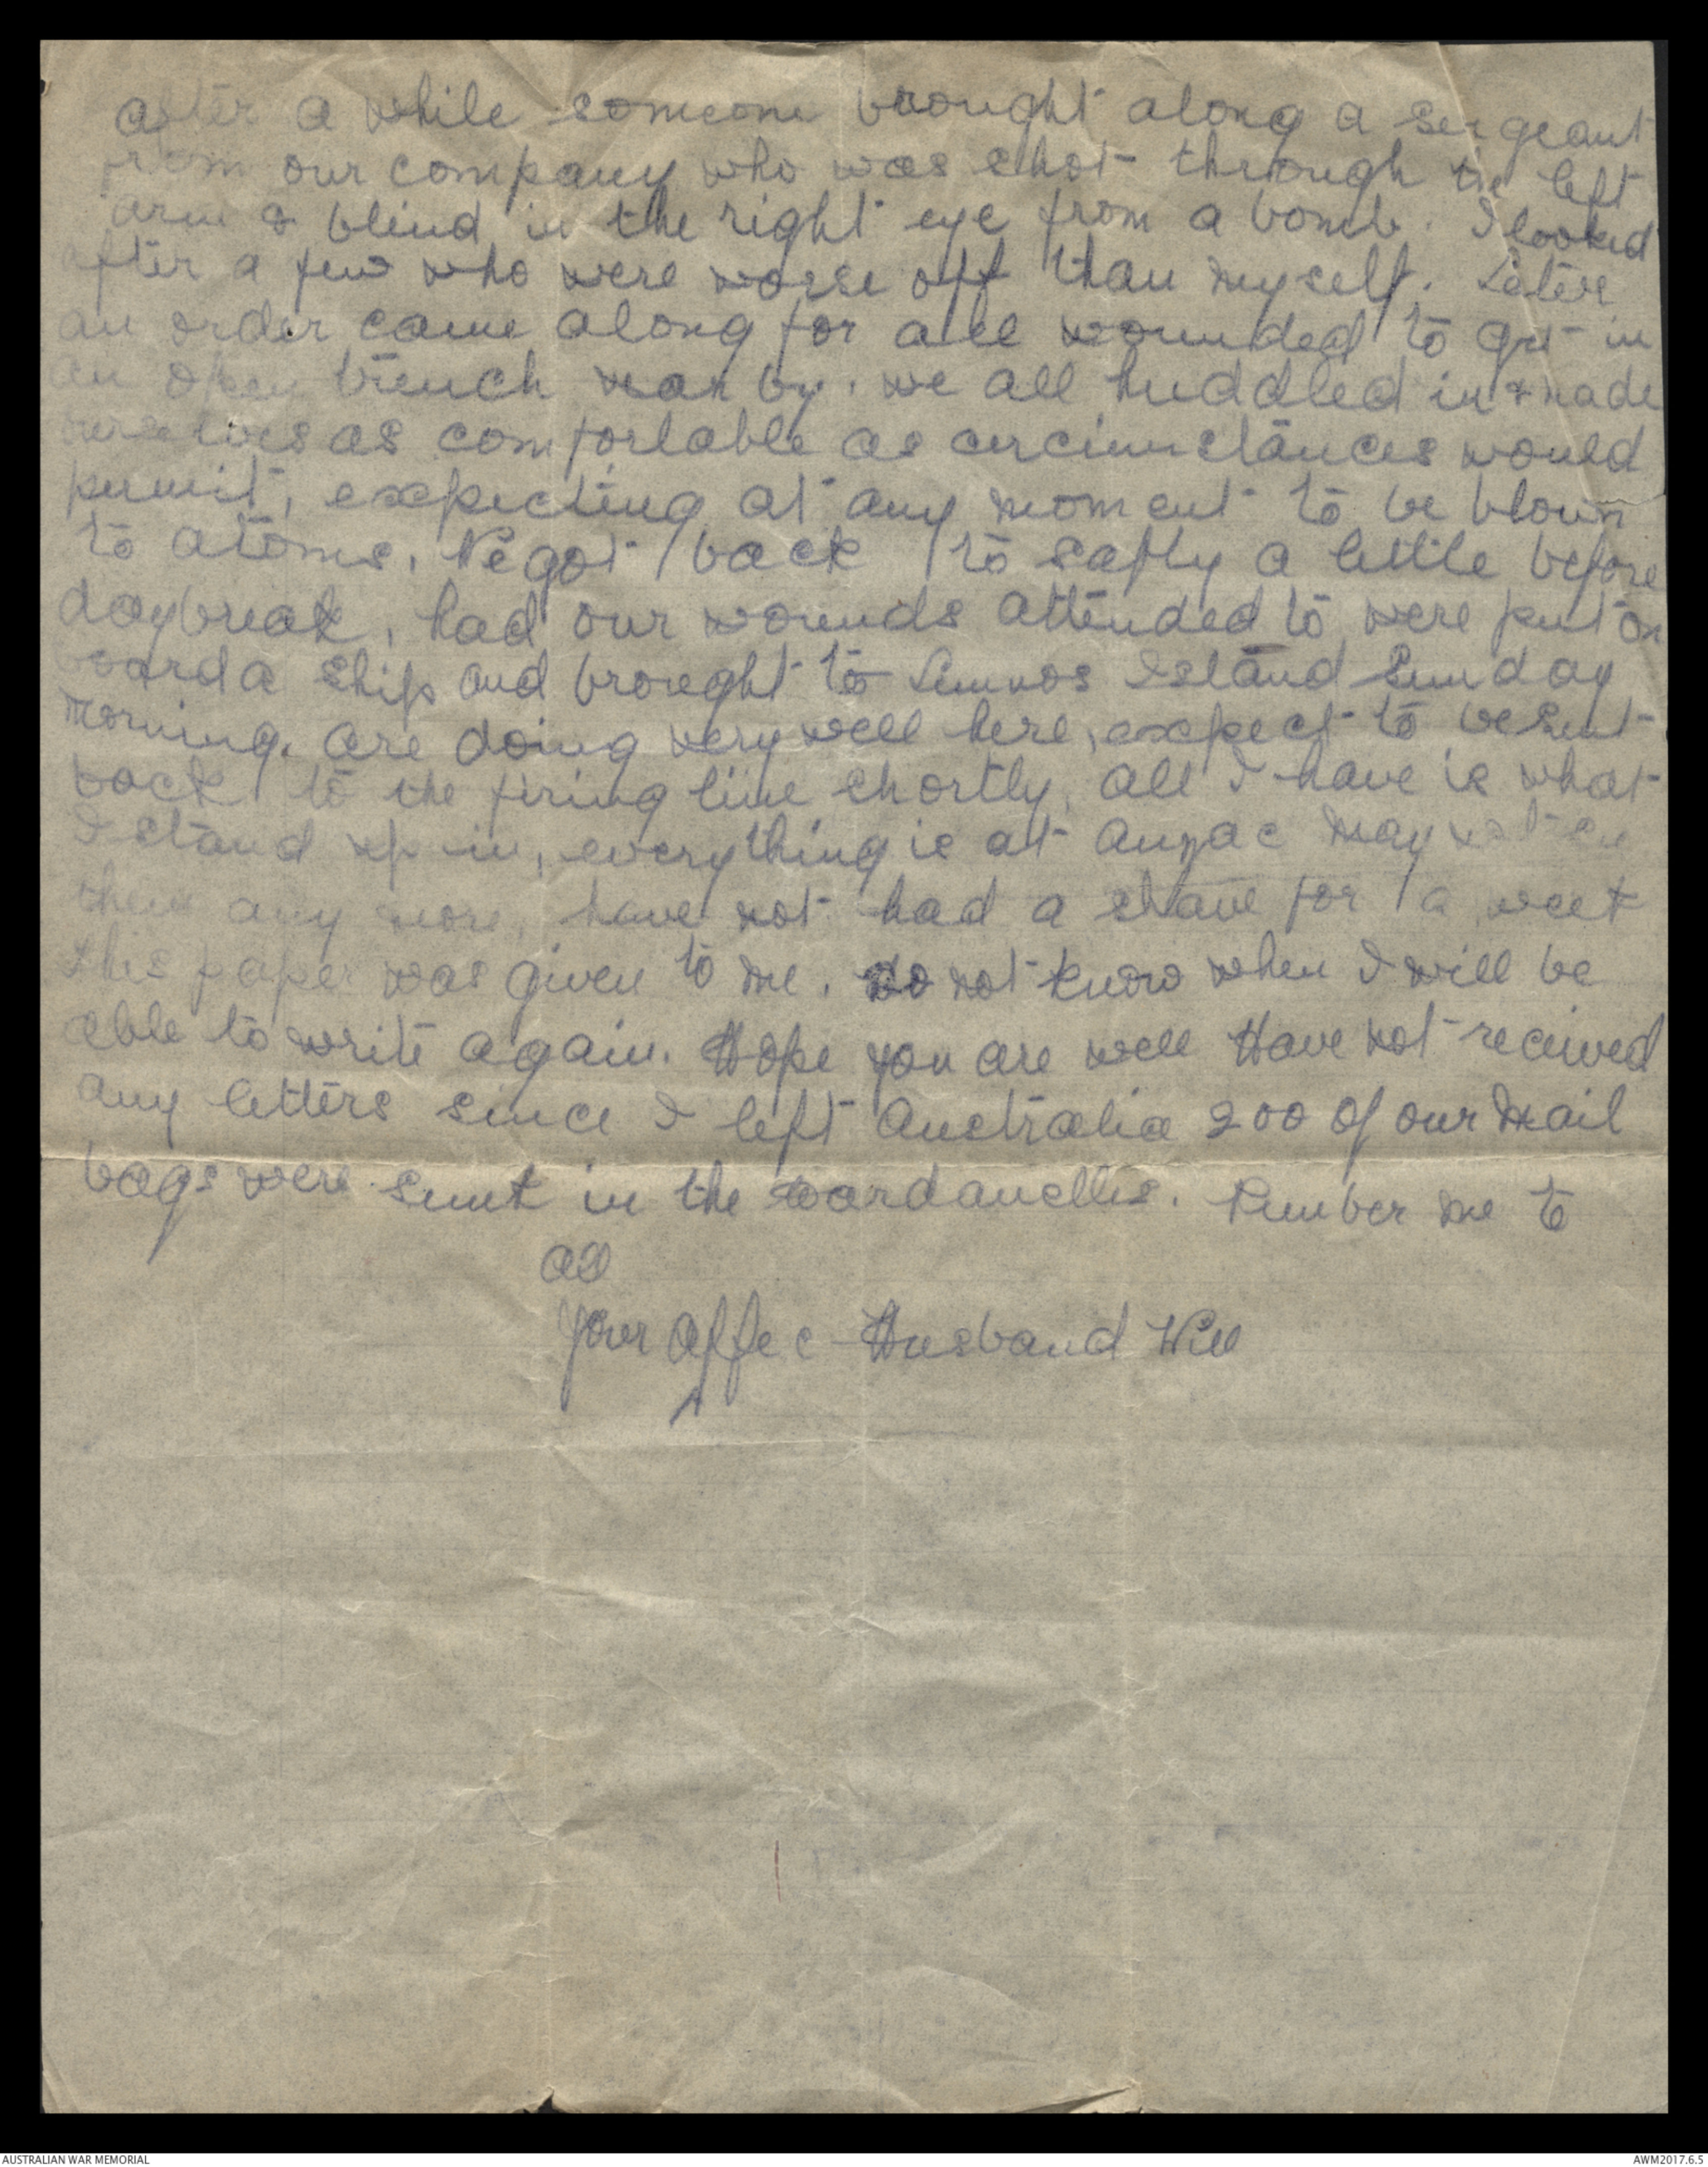 after a while someone brought along a sergeant
from our company who was shot through the left
arm & blind in the right eye from a bomb. I looked
after a few who were worse off than myself. Later
an order came along for all wounded to get in
an open trench near by. we all huddled in & made
ourselves as comfortable as circumstances would
permit, expecting at any moment to be blown
to atoms. We got back to safty a little before
daybreak, had our wounds attended to were put on
board a ship and brought to Lemnos Island Sunday
morning. are doing very well here, expect to be sent
back to the firing line shortly, all I have is what
I stand up in, everything is at Anzac may not see
them any more, have not had a shave for a week
this paper was given to me. do not know when I will be
able to write again. Hope you are well Have not received
any letters since I left Australia 200 of our mail
bags were sunk in the dardanelles. Rember me to
all
Your Affec- Husband Will
AUSTRALIAN WAR MEMORIAL
AWM2017.6.5